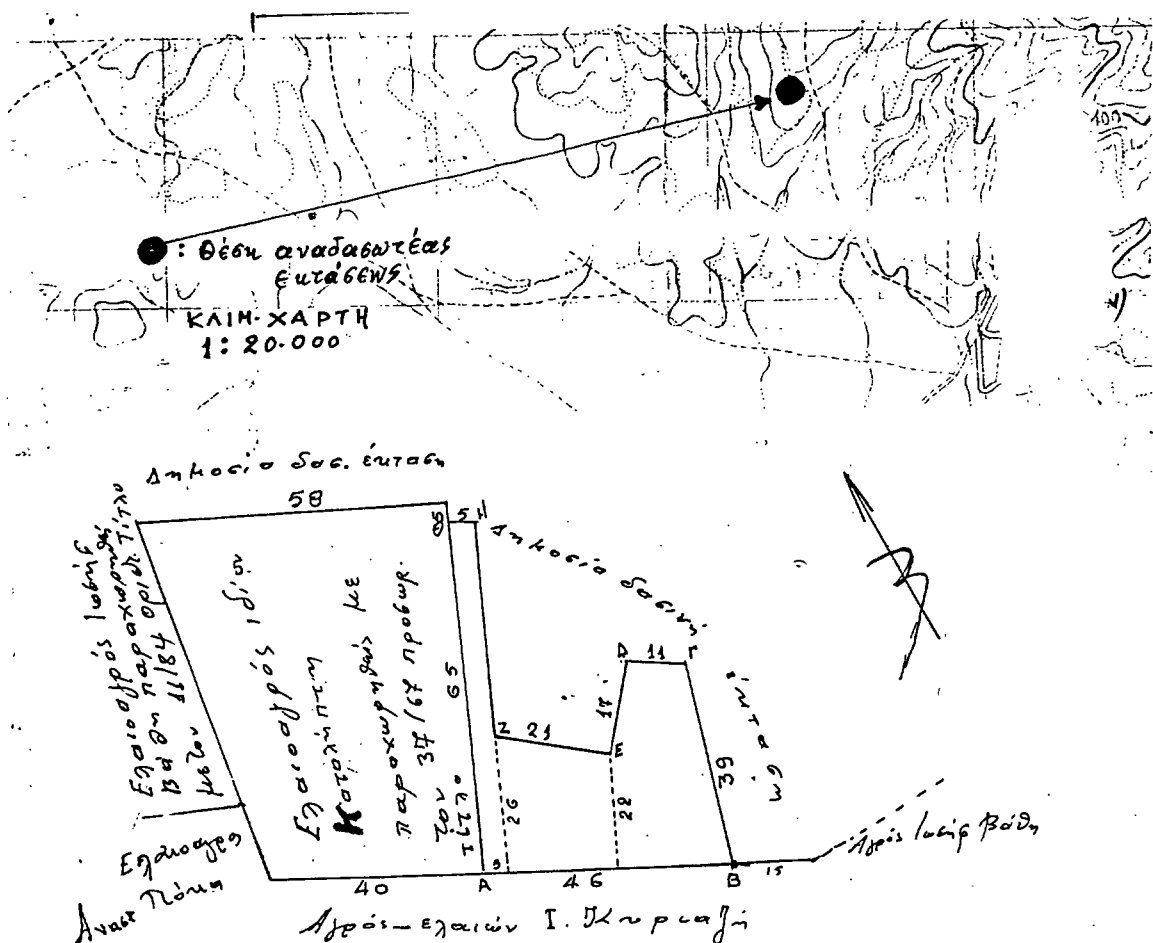 100
: Θέση αναδασωτέας
εκτάσεως
ΚΛΙΜ. ΧΑΡΤΗ
1: 20.000
Δημοσία δασ. έκταση
58
5 Η
Δημοσία δασική
έκταση
Ελαιοαγρός Ιωσήφ
Βάθη παραχωρηθείς
με τον 11/84 οριστ. τίτλο
Ελαιοαγρός ιδίου
παραχωρηθείς με
τον 37/67 προσωρ.
τίτλο
65
Δ 11 Γ
17
Ζ 21 Ε
26
22
39
Ελαιοαγρός
Αναστ
40 Α 5 46 Β 15
Αγρός Ιωσήφ Βάθη
Αγρός-ελαιών Ι. Κυριαζή